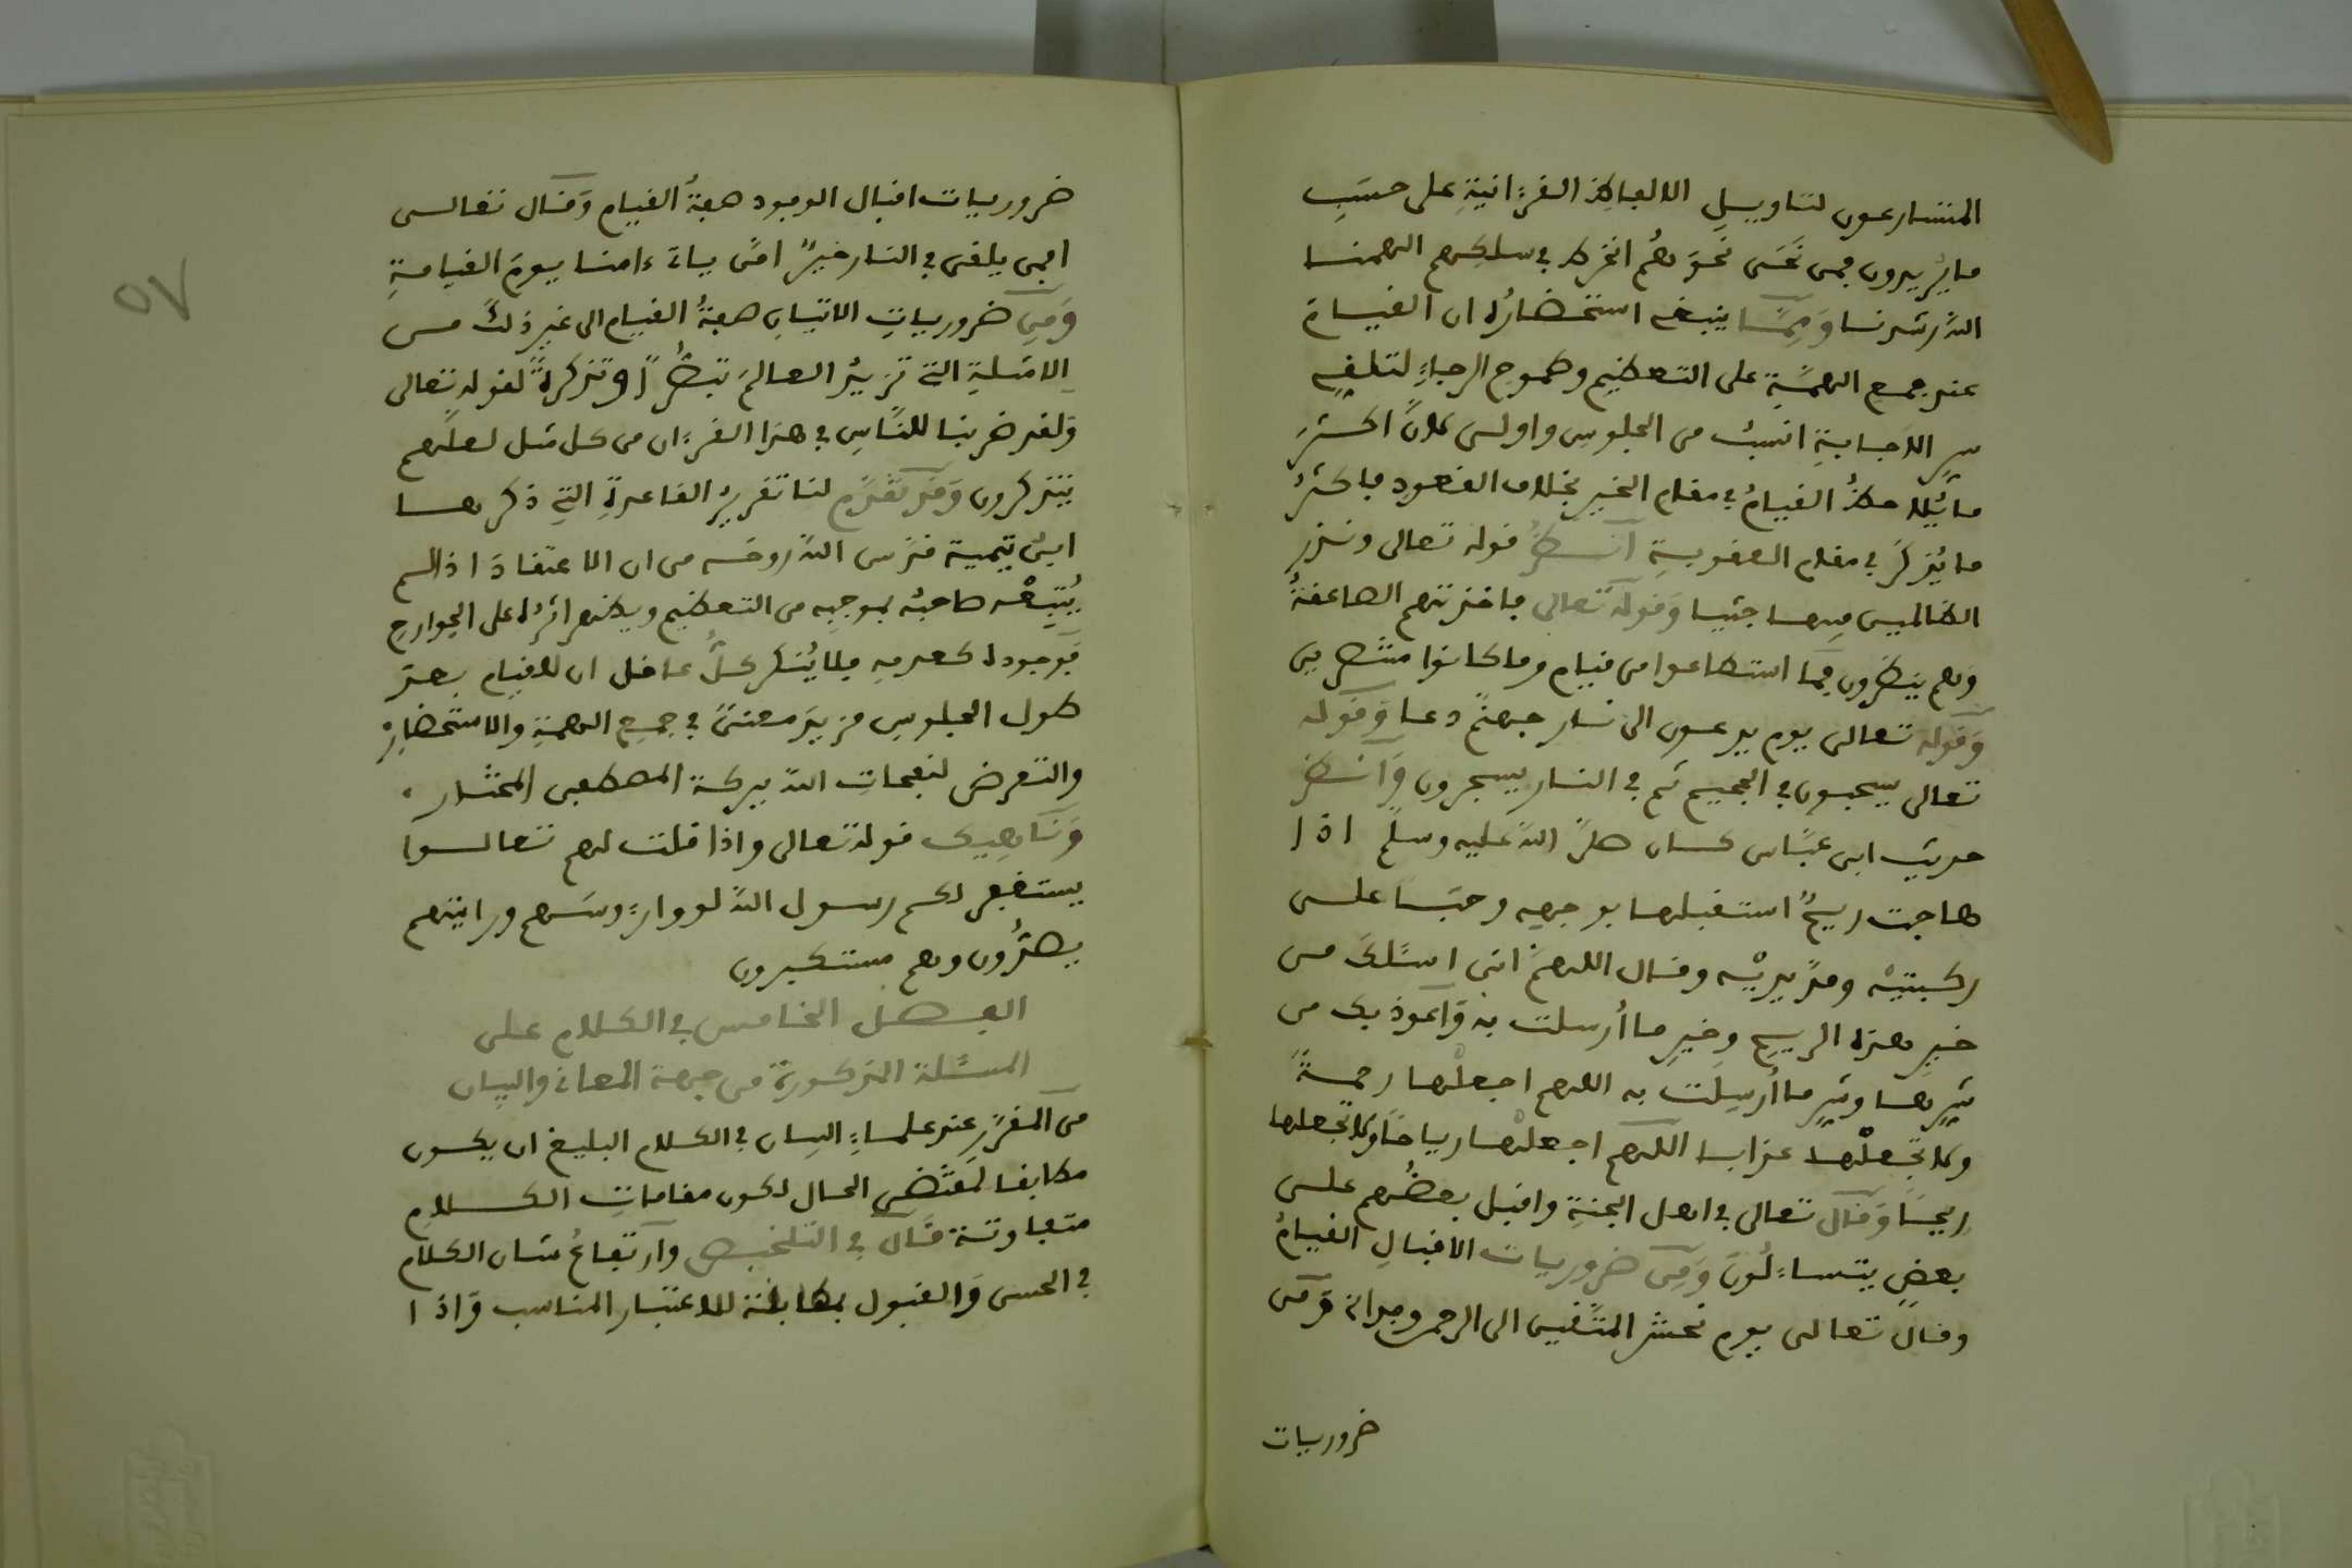 المتسارعون لتاويل الالفاظ القرءانية على حسب
ما يريدون فمن نحى نحوهم انخرط في سلكهم الهمنا
الله رشدنا وَمِمَّا ينبغي استحضاره ان القيام
عند جمع الهمة على التعظيم وطموح الرجاء لتلقي
سر الاجابة انسب من الجلوس واولى لان اكثر
ما يلاحظ القيام في مقام الخير بخلاف القعود فاكثر
ما يذكر في مقام العقوبة انظر قوله تعالى ونذر
الظالمين فيها جثيا وَقوله تعالى فاخذتهم الصاعقة
وهم ينظرون فما استطاعوا من قيام وما كانوا منتصرين
وَقوله تعالى يوم يدعون الى نار جهنم دعا وَقوله
تعالى يسحبون في الحميم ثم في النار يسجرون وَانظر
حديث ابن عباس كان صلى الله عليه وسلم اذا
هاجت ريح استقبلها بوجهه وجثا على
ركبتيه ومد يديه وقال اللهم اني اسئلك من
خير هذه الريح وخير ما أرسلت به وَاعوذ بك من
شرها وشر ما أرسلت به اللهم اجعلها رحمة
ولا تجعلها عذابا اللهم اجعلها رياحا ولا تجعلها
ريحا وَقال تعالى في اهل الجنة واقبل بعضهم على
بعض يتساءلون وَمِن ضروريات الاقبال القيام
وقال تعالى يوم نحشر المتقين الى الرحمن وفدا وَمن
ضروريات
ضروريات اقبال الوفود صفة القيام وَقال تعالى
افمن يلقى في النار خير امن ياتي ءامنا يوم القيامة
وَمِن ضروريات الاتيان صفة القيام الى غير ذلك من
الامثلة التي تزيد العالم تبصرا وتذكرة لقوله تعالى
وَلقد ضربنا للناس في هذا القرءان من كل مثل لعلهم
يتذكرون وَقد تقدم لنا تقرير القاعدة التي ذكرها
ابن تيمية قدس الله روحه من ان الاعتقاد اذا لم
يُتبعه صاحبه بموجبه من التعظيم ويظهر اثره على الجوارح
فوجوده كعدمه فلا ينكر كل عاقل ان للقيام بعد
طول الجلوس مزيد معنى في جمع الهمة والاستحضار
والتعرض لنفحات الله ببركة المصطفى المختار
وَنَاهِيك قوله تعالى واذا قلت لهم تعالوا
يستغفر لكم رسول الله لووا رءوسهم ورايتهم
يصدون وهم مستكبرون
الفصل الخامس في الكلام على
المسئلة المذكورة من جهة المعاني والبيان
من المقرر عند علماء البيان في الكلام البليغ ان يكون
مطابقا لمقتضى الحال لكون مقامات الكلام
متفاوتة قال في التلخيص وارتفاع شان الكلام
في الحسن وَالقبول بمطابقته للاعتبار المناسب وَاذا